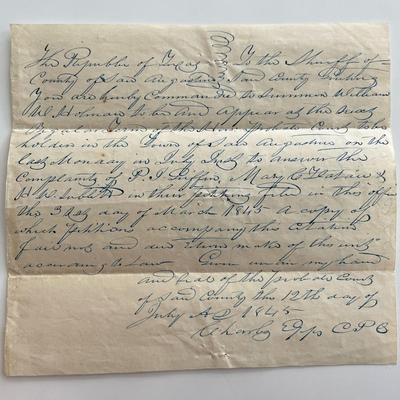 The Republic of Texas To the Sheriff of
County of San Augustine Said County Greeting
You are hereby Commanded to Summon William
W. Holman to be and appear at the next
Regular Term of the Hon Probate Court to be
holden in the Town of San Augustine on the
last Monday in July Inst to answer the
Complaint of P. J. Mary C. &
H W Sublett in their petition filed in this office
the 31st day of March 1845 A copy of
which petition accompany this Citation
fail not and due return make of this writ
according to Law Given under my hand
and Seal of the Probate Court
of said County this 12th day of
July AD 1845
Epps C P C